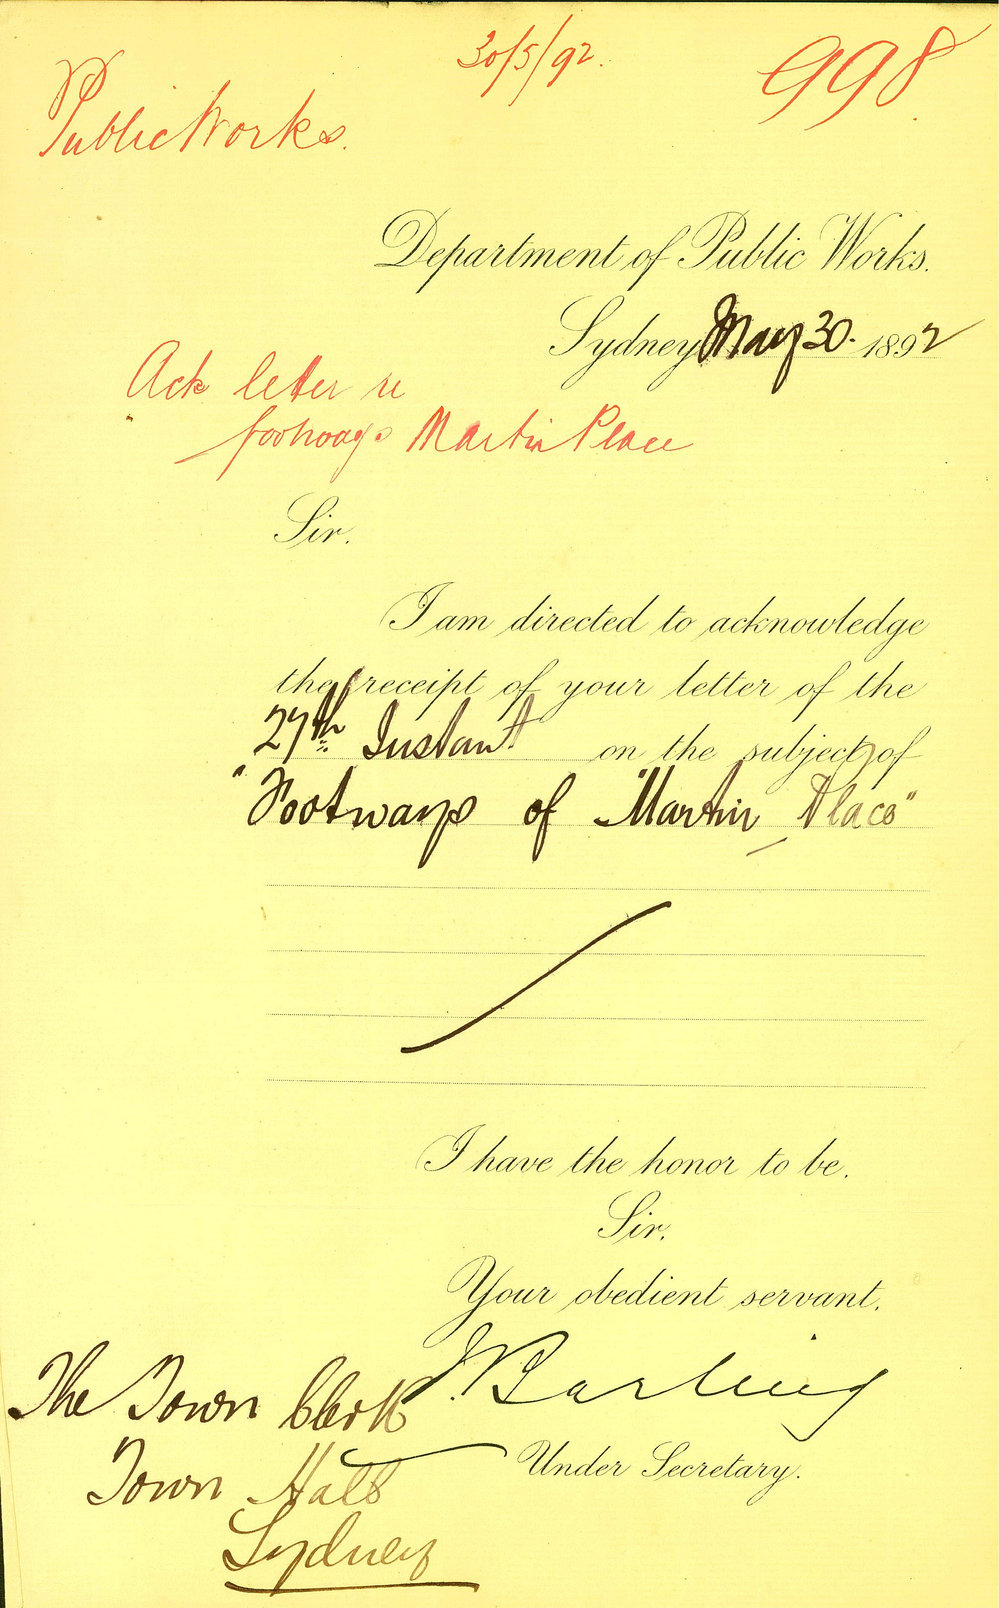 30/5/92.
998
Public Works.
Department of Public Works.
Sydney May 30. 1892
Ack letter re
footways Martin Place
Sir.
I am directed to acknowledge
the receipt of your letter of the
27th Instant on the subject of
"Footways of Martin Place"
I have the honor to be.
Sir.
Your obedient servant.
J Barling
Under Secretary.
The Town Clerk
Town Hall
Sydney